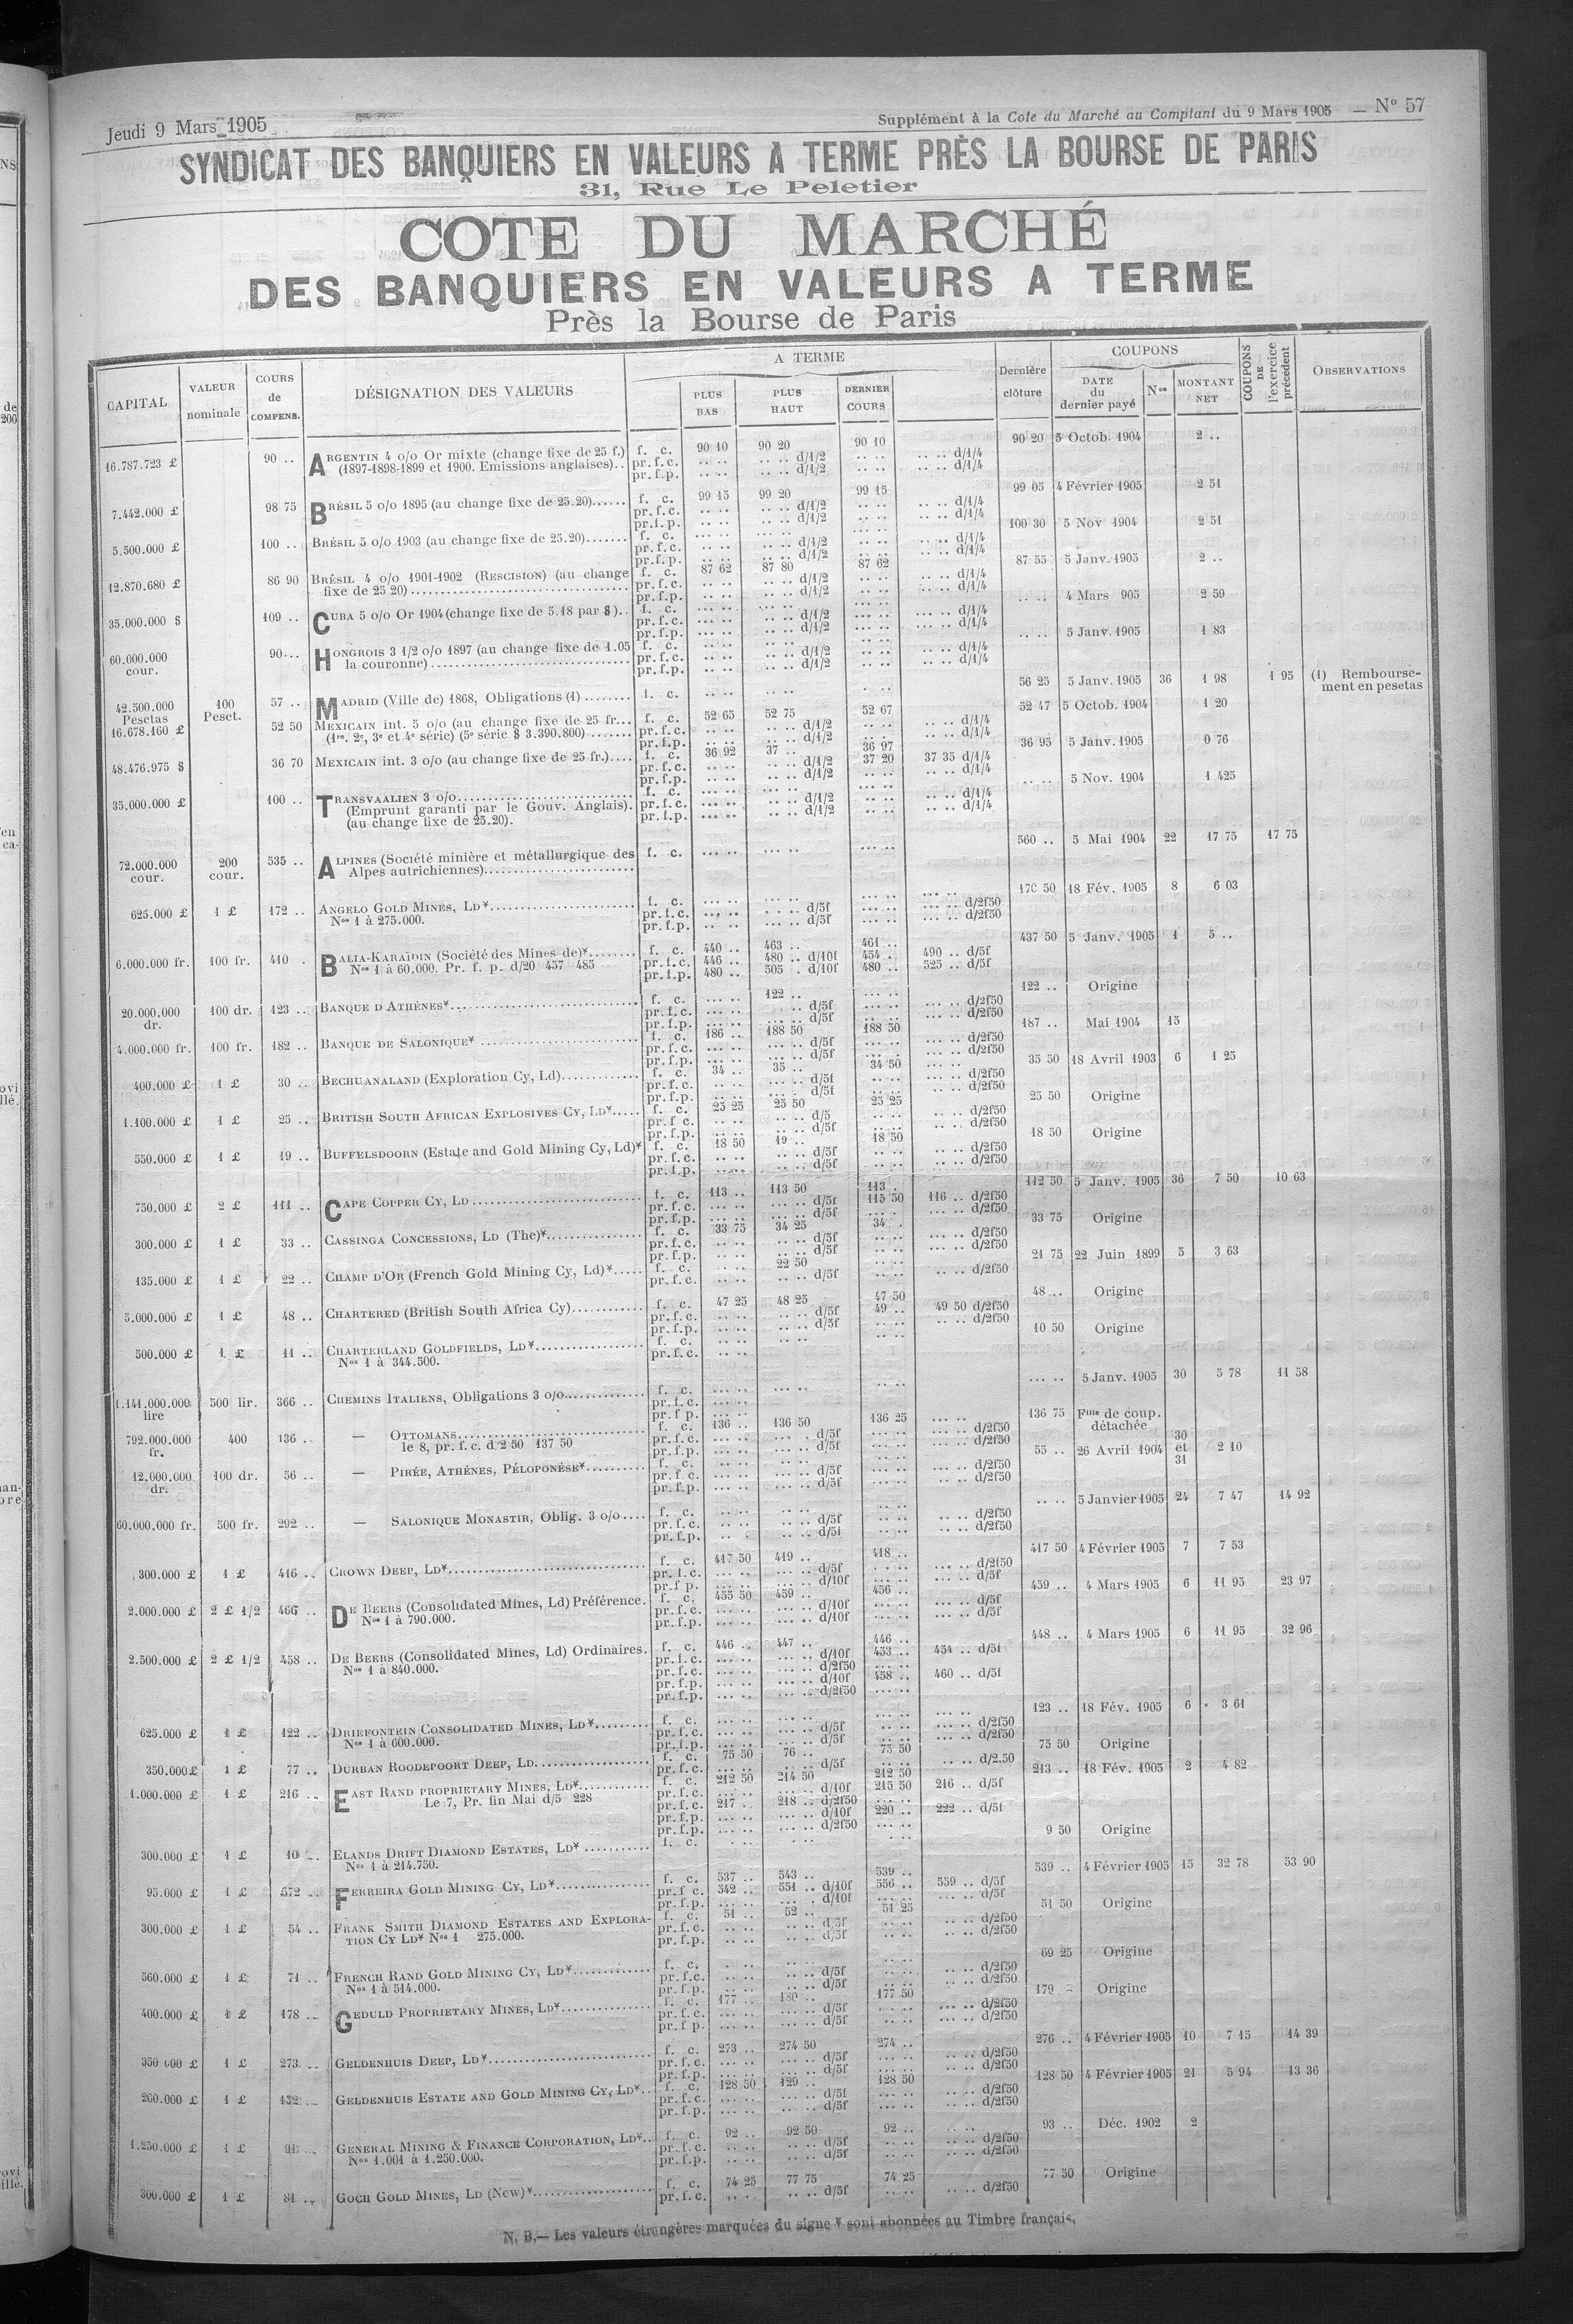 Jeudi 9 Mars 1905
Supplément à la Cote du Marché au Comptant du 9 Mars 1905 — N° 57
SYNDICAT DES BANQUIERS EN VALEURS A TERME PRÈS LA BOURSE DE PARIS
31, Rue Le Peletier
COTE DU MARCHÉ
DES BANQUIERS EN VALEURS A TERME
Près la Bourse de Paris
CAPITAL
VALEUR nominale
COURS de COMPENS.
DÉSIGNATION DES VALEURS
A TERME
PLUS BAS
PLUS HAUT
DERNIER COURS
Dernière clôture
COUPONS
DATE du dernier payé
Nos
MONTANT NET
COUPONS DE l'exercice précédent
OBSERVATIONS
16.787.723 £ 90 .. ARGENTIN 4 o/o Or mixte (change fixe de 25 f.) f. c. 90 10 90 20 90 10 90 20 5 Octob. 1904 2 ..
(1897-1898-1899 et 1900. Emissions anglaises).. pr.f.c. .. .. .. .. d/1/2 .. .. .. .. d/1/4
pr.f.p. .. .. .. .. d/1/2 .. .. .. .. d/1/4
7.442.000 £ 98 75 BRÉSIL 5 o/o 1895 (au change fixe de 25.20)...... f. c. 99 15 99 20 99 15 99 05 4 Février 1905 2 51
pr.f.c. .. .. .. .. d/1/2 .. .. .. .. d/1/4
pr.f.p. .. .. .. .. d/1/2 .. .. .. .. d/1/4
5.500.000 £ 100 .. BRÉSIL 5 o/o 1903 (au change fixe de 25.20)....... f. c. 100 30 5 Nov 1904 2 51
pr.f.c. .. .. .. .. d/1/2 .. .. .. .. d/1/4
pr.f.p. .. .. .. .. d/1/2 .. .. .. .. d/1/4
12.870.680 £ 86 90 BRÉSIL 4 o/o 1901-1902 (RESCISION) (au change f. c. 87 62 87 80 87 62 87 55 5 Janv. 1905 2 ..
fixe de 25 20) pr.f.c. .. .. .. .. d/1/2 .. .. .. .. d/1/4
pr.f.p. .. .. .. .. d/1/2 .. .. .. .. d/1/4
35.000.000 $ 109 .. CUBA 5 o/o Or 1904 (change fixe de 5.18 par $).. f. c. .. .. 4 Mars 905 2 59
pr.f.c. .. .. d/1/2 .. .. d/1/4
pr.f.p. .. .. d/1/2 .. .. d/1/4
60.000.000 cour. 90 .. HONGROIS 3 1/2 o/o 1897 (au change fixe de 1.05 f. c. .. .. 5 Janv. 1905 1 83
la couronne) pr.f.c. .. .. d/1/2 .. .. d/1/4
pr.f.p. .. .. d/1/2 .. .. d/1/4
42.500.000 Pesetas 100 Peset. 57 .. MADRID (Ville de) 1868, Obligations (1) ........ f. c. 56 25 5 Janv. 1905 36 1 98 1 95 (1) Remboursement en pesetas
16.678.160 £ 52 50 MEXICAIN int. 5 o/o (au change fixe de 25 fr... f. c. 52 65 52 75 52 67 52 47 5 Octob. 1904 1 20
(1re. 2e, 3e et 4e série) (5e série $ 3.390.800) ....... pr.f.c. .. .. d/1/2 .. .. d/1/4
pr.f.p. .. .. d/1/2 .. .. d/1/4
48.476.975 $ 36 70 MEXICAIN int. 3 o/o (au change fixe de 25 fr.).... f. c. 36 92 37 .. 36 97 36 95 5 Janv. 1905 0 76
pr.f.c. .. .. d/1/2 37 20 37 35 d/1/4
pr.f.p. .. .. d/1/2 .. .. d/1/4
35.000.000 £ 100 .. TRANSVAALIEN 3 o/o f. c. .. .. 5 Nov. 1904 1 425
(Emprunt garanti par le Gouv. Anglais). pr.f.c. .. .. d/1/2 .. .. d/1/4
(au change fixe de 25.20). pr.f.p. .. .. d/1/2 .. .. d/1/4
72.000.000 cour. 200 cour. 535 .. ALPINES (Société minière et métallurgique des f. c. 560 .. 5 Mai 1904 22 17 75 17 75
Alpes autrichiennes)
625.000 £ 1 £ 172 .. ANGELO GOLD MINES, LD* f. c. 170 50 18 Fév. 1905 8 6 03
Nos 1 à 275.000. pr.f.c. .. .. d/5f .. .. d/2f50
pr.f.p. .. .. d/5f .. .. d/2f50
6.000.000 fr. 100 fr. 410 . BALIA-KARAÏDIN (Société des Mines de)* f. c. 440 .. 463 .. 461 .. 437 50 5 Janv. 1905 1 5 ..
Nos 1 à 60.000. Pr. f. p. d/20 457 485 pr.f.c. 446 .. 480 .. d/10f 454 .. 490 .. d/5f
pr.f.p. 480 .. 505 . d/10f 480 .. 525 .. d/5f
20.000.000 dr. 100 dr. 123 .. BANQUE D ATHÈNES* f. c. 122 .. 122 .. Origine
pr.f.c. .. .. d/5f .. .. d/2f50
pr.f.p. .. .. d/5f .. .. d/2f50
4.000.000 fr. 100 fr. 182 .. BANQUE DE SALONIQUE* f. c. 186 .. 188 50 188 50 187 .. Mai 1904 15
pr.f.c. .. .. d/5f .. .. d/2f50
pr.f.p. .. .. d/5f .. .. d/2f50
400.000 £ 1 £ 30 .. BECHUANALAND (Exploration Cy, Ld) f. c. 34 .. 35 .. 34 50 35 50 18 Avril 1903 6 1 25
pr.f.c. .. .. d/5f .. .. d/2f50
pr.f.p. .. .. d/5f .. .. d/2f50
1.100.000 £ 1 £ 25 .. BRITISH SOUTH AFRICAN EXPLOSIVES CY, LD* f. c. 25 25 25 50 25 25 25 50 Origine
pr.f c. .. .. d/5 .. .. d/2f50
pr.f.p. .. .. d/5f .. .. d/2f50
550.000 £ 1 £ 19 .. BUFFELSDOORN (Estate and Gold Mining Cy, Ld)* f. c. 18 50 19 .. 18 50 18 50 Origine
pr.f.c. .. .. d/5f .. .. d/2f50
pr.f.p. .. .. d/5f .. .. d/2f50
750.000 £ 2 £ 111 .. CAPE COPPER CY, LD f. c. 113 .. 113 50 113 . 112 50 5 Janv. 1905 36 7 50 10 63
pr.f.c. .. .. d/5f 115 50 116 .. d/2f50
pr.f.p. .. .. d/5f .. .. d/2f50
300.000 £ 1 £ 33 .. CASSINGA CONCESSIONS, LD (The)* f. c. 33 75 34 25 34 . 33 75 Origine
pr.f.c. .. .. d/5f .. .. d/2f50
pr.f.p. .. .. d/5f .. .. d/2f50
135.000 £ 1 £ 22 .. CHAMP D'OR (French Gold Mining Cy, Ld)* f. c. 22 50 21 75 22 Juin 1899 5 3 63
pr.f.c. .. .. d/5f .. .. d/2f50
5.000.000 £ 1 £ 48 .. CHARTERED (British South Africa Cy) f. c. 47 25 48 25 47 50 48 .. Origine
pr.f.c. .. .. d/5f 49 .. 49 50 d/2f50
pr.f.p. .. .. d/5f .. .. d/2f50
500.000 £ 1 £ 11 .. CHARTERLAND GOLDFIELDS, LD* f. c. 10 50 Origine
Nos 1 à 344.500. pr.f.c.
1.141.000.000 lire 500 lir. 366 .. CHEMINS ITALIENS, Obligations 3 o/o f. c. .. .. 5 Janv. 1905 30 5 78 11 58
pr.f.c.
pr.f p.
792.000.000 fr. 400 136 .. — OTTOMANS f. c. 136 .. 136 50 136 25 136 75 Fille de coup. détachée
le 8, pr. f. c. d/2 50 137 50 pr.f.c. .. .. d/5f .. .. d/2f50
pr.f.p. .. .. d/5f .. .. d/2f50
12.000.000 dr. 100 dr. 56 .. — PIRÉE, ATHÈNES, PÉLOPONÈSE* f. c. 55 .. 26 Avril 1904 30 et 31 2 10
pr.f.c. .. .. d/5f .. .. d/2f50
pr.f.p. .. .. d/5f .. .. d/2f50
60.000.000 fr. 500 fr. 292 .. — SALONIQUE MONASTIR, Oblig. 3 o/o f. c. .. .. 5 Janvier 1905 24 7 47 14 92
pr.f.c. .. .. d/5f .. .. d/2f50
pr.f.p. .. .. d/5f .. .. d/2f50
300.000 £ 1 £ 416 .. CROWN DEEP, LD* f. c. 417 50 419 .. 418 .. 417 50 4 Février 1905 7 7 53
pr.f.c. .. .. d/5f .. .. d/2f50
pr.f p. .. .. d/10f .. .. d/5f
2.000.000 £ 2 £ 1/2 466 .. DE BEERS (Consolidated Mines, Ld) Préférence. f. c. 455 50 459 .. 456 .. 459 .. 4 Mars 1905 6 11 95 23 97
Nos 1 à 790.000. pr.f.c. .. .. d/10f .. .. d/5f
pr.f.p. .. .. d/10f .. .. d/5f
2.500.000 £ 2 £ 1/2 458 .. DE BEERS (Consolidated Mines, Ld) Ordinaires. f. c. 446 .. 447 .. 446 .. 448 .. 4 Mars 1905 6 11 95 32 96
Nos 1 à 840.000. pr.f.c. .. .. d/10f 453 .. 454 .. d/5f
pr.f.c. .. .. d/2f50
pr.f.p. .. .. d/10f 458 .. 460 .. d/5f
pr.f.p. .. .. d/2f50
625.000 £ 1 £ 122 .. DRIEFONTEIN CONSOLIDATED MINES, LD* f. c. 123 .. 18 Fév. 1905 6 3 61
Nos 1 à 600.000. pr.f.c. .. .. d/5f .. .. d/2f50
pr.f.p. .. .. d/5f .. .. d/2f50
350.000 £ 1 £ 77 .. DURBAN ROODEPOORT DEEP, LD f. c. 75 50 76 .. 75 50 75 50 Origine
pr.f.c. .. .. d/5f .. .. d/2.50
1.000.000 £ 1 £ 216 .. EAST RAND PROPRIETARY MINES, LD* f. c. 212 50 214 50 212 50 213 .. 18 Fév. 1905 2 4 82
Le 7, Pr. fin Mai d/5 228 pr.f.c. .. .. d/10f 215 50 216 .. d/5f
pr.f.c. 217 .. 218 .. d/2f50
pr.f.p. .. .. d/10f 220 .. 222 .. d/5f
pr.f.p. .. .. d/2f50
300.000 £ 1 £ 10 .. ELANDS DRIFT DIAMOND ESTATES, LD* f. c. 9 50 Origine
Nos 1 à 214.750.
95.000 £ 1 £ 572 .. FERREIRA GOLD MINING CY, LD* f. c. 537 .. 543 .. 539 .. 539 .. 4 Février 1905 15 32 78 53 90
pr.f c. 542 .. 551 .. d/10f 556 .. 559 .. d/5f
pr.f.p. .. .. d/10f .. .. d/5f
300.000 £ 1 £ 54 .. FRANK SMITH DIAMOND ESTATES AND EXPLORA- f. c. 51 .. 52 .. 51 25 51 50 Origine
TION CY LD* Nos 1 275.000. pr.f.c. .. .. d/5f .. .. d/2f50
pr.f.p. .. .. d/5f .. .. d/2f50
560.000 £ 1 £ 71 .. FRENCH RAND GOLD MINING CY, LD* f. c. 69 25 Origine
Nos 1 à 514.000. pr.f.c. .. .. d/5f .. .. d/2f50
pr.f.p. .. .. d/5f .. .. d/2f50
400.000 £ 1 £ 178 .. GEDULD PROPRIETARY MINES, LD* f. c. 177 .. 180 .. 177 50 179 Origine
pr.f.c. .. .. d/5f .. .. d/2f50
pr.f p. .. .. d/5f .. .. d/2f50
350 000 £ 1 £ 273 .. GELDENHUIS DEEP, LD* f. c. 273 .. 274 50 274 .. 276 .. 4 Février 1905 10 7 15 14 39
pr.f.c. .. .. d/5f .. .. d/2f50
pr.f.p. .. .. d/5f .. .. d/2f50
200.000 £ 1 £ 132 .. GELDENHUIS ESTATE AND GOLD MINING CY, LD* f. c. 128 50 129 .. 128 50 128 50 4 Février 1905 21 5 94 13 36
pr.f.c. .. .. d/5f .. .. d/2f50
pr.f.p. .. .. d/5f .. .. d/2f50
1.250.000 £ 1 £ 91 .. GENERAL MINING & FINANCE CORPORATION, LD* f. c. 92 .. 92 50 92 .. 93 .. Déc. 1902 2
Nos 1.001 à 1.250.000. pr.f.c. .. .. d/5f .. .. d/2f50
pr.f.p. .. .. d/5f .. .. d/2f50
300.000 £ 1 £ 81 .. GOCH GOLD MINES, LD (New)* f. c. 74 25 77 75 74 25 77 50 Origine
pr.f.c. .. .. d/5f .. .. d/2f50
N. B.— Les valeurs étrangères marquées du signe * sont abonnées au Timbre français.